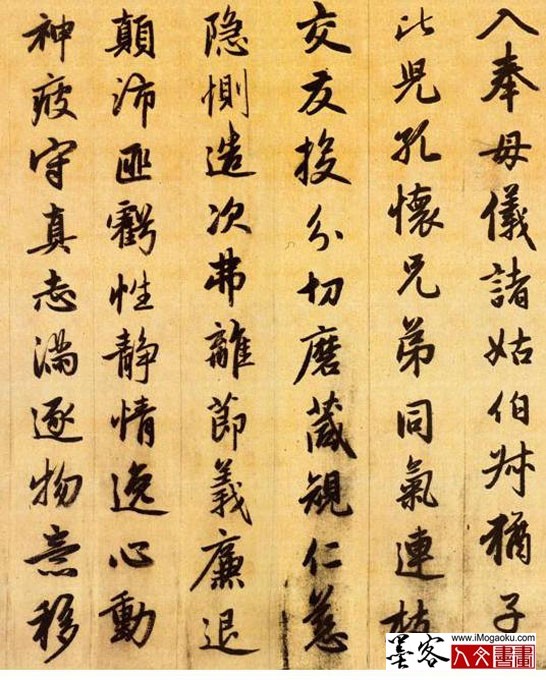 入奉母儀諸姑伯叔猶子
比兒孔懷兄弟同氣連枝
交友投分切磨箴規仁慈
隐惻造次弗離節義廉退
顛沛匪虧性静情逸心動
神疲守真志滿逐物意移
墨客
www.iMogaoku.com
人文書畫